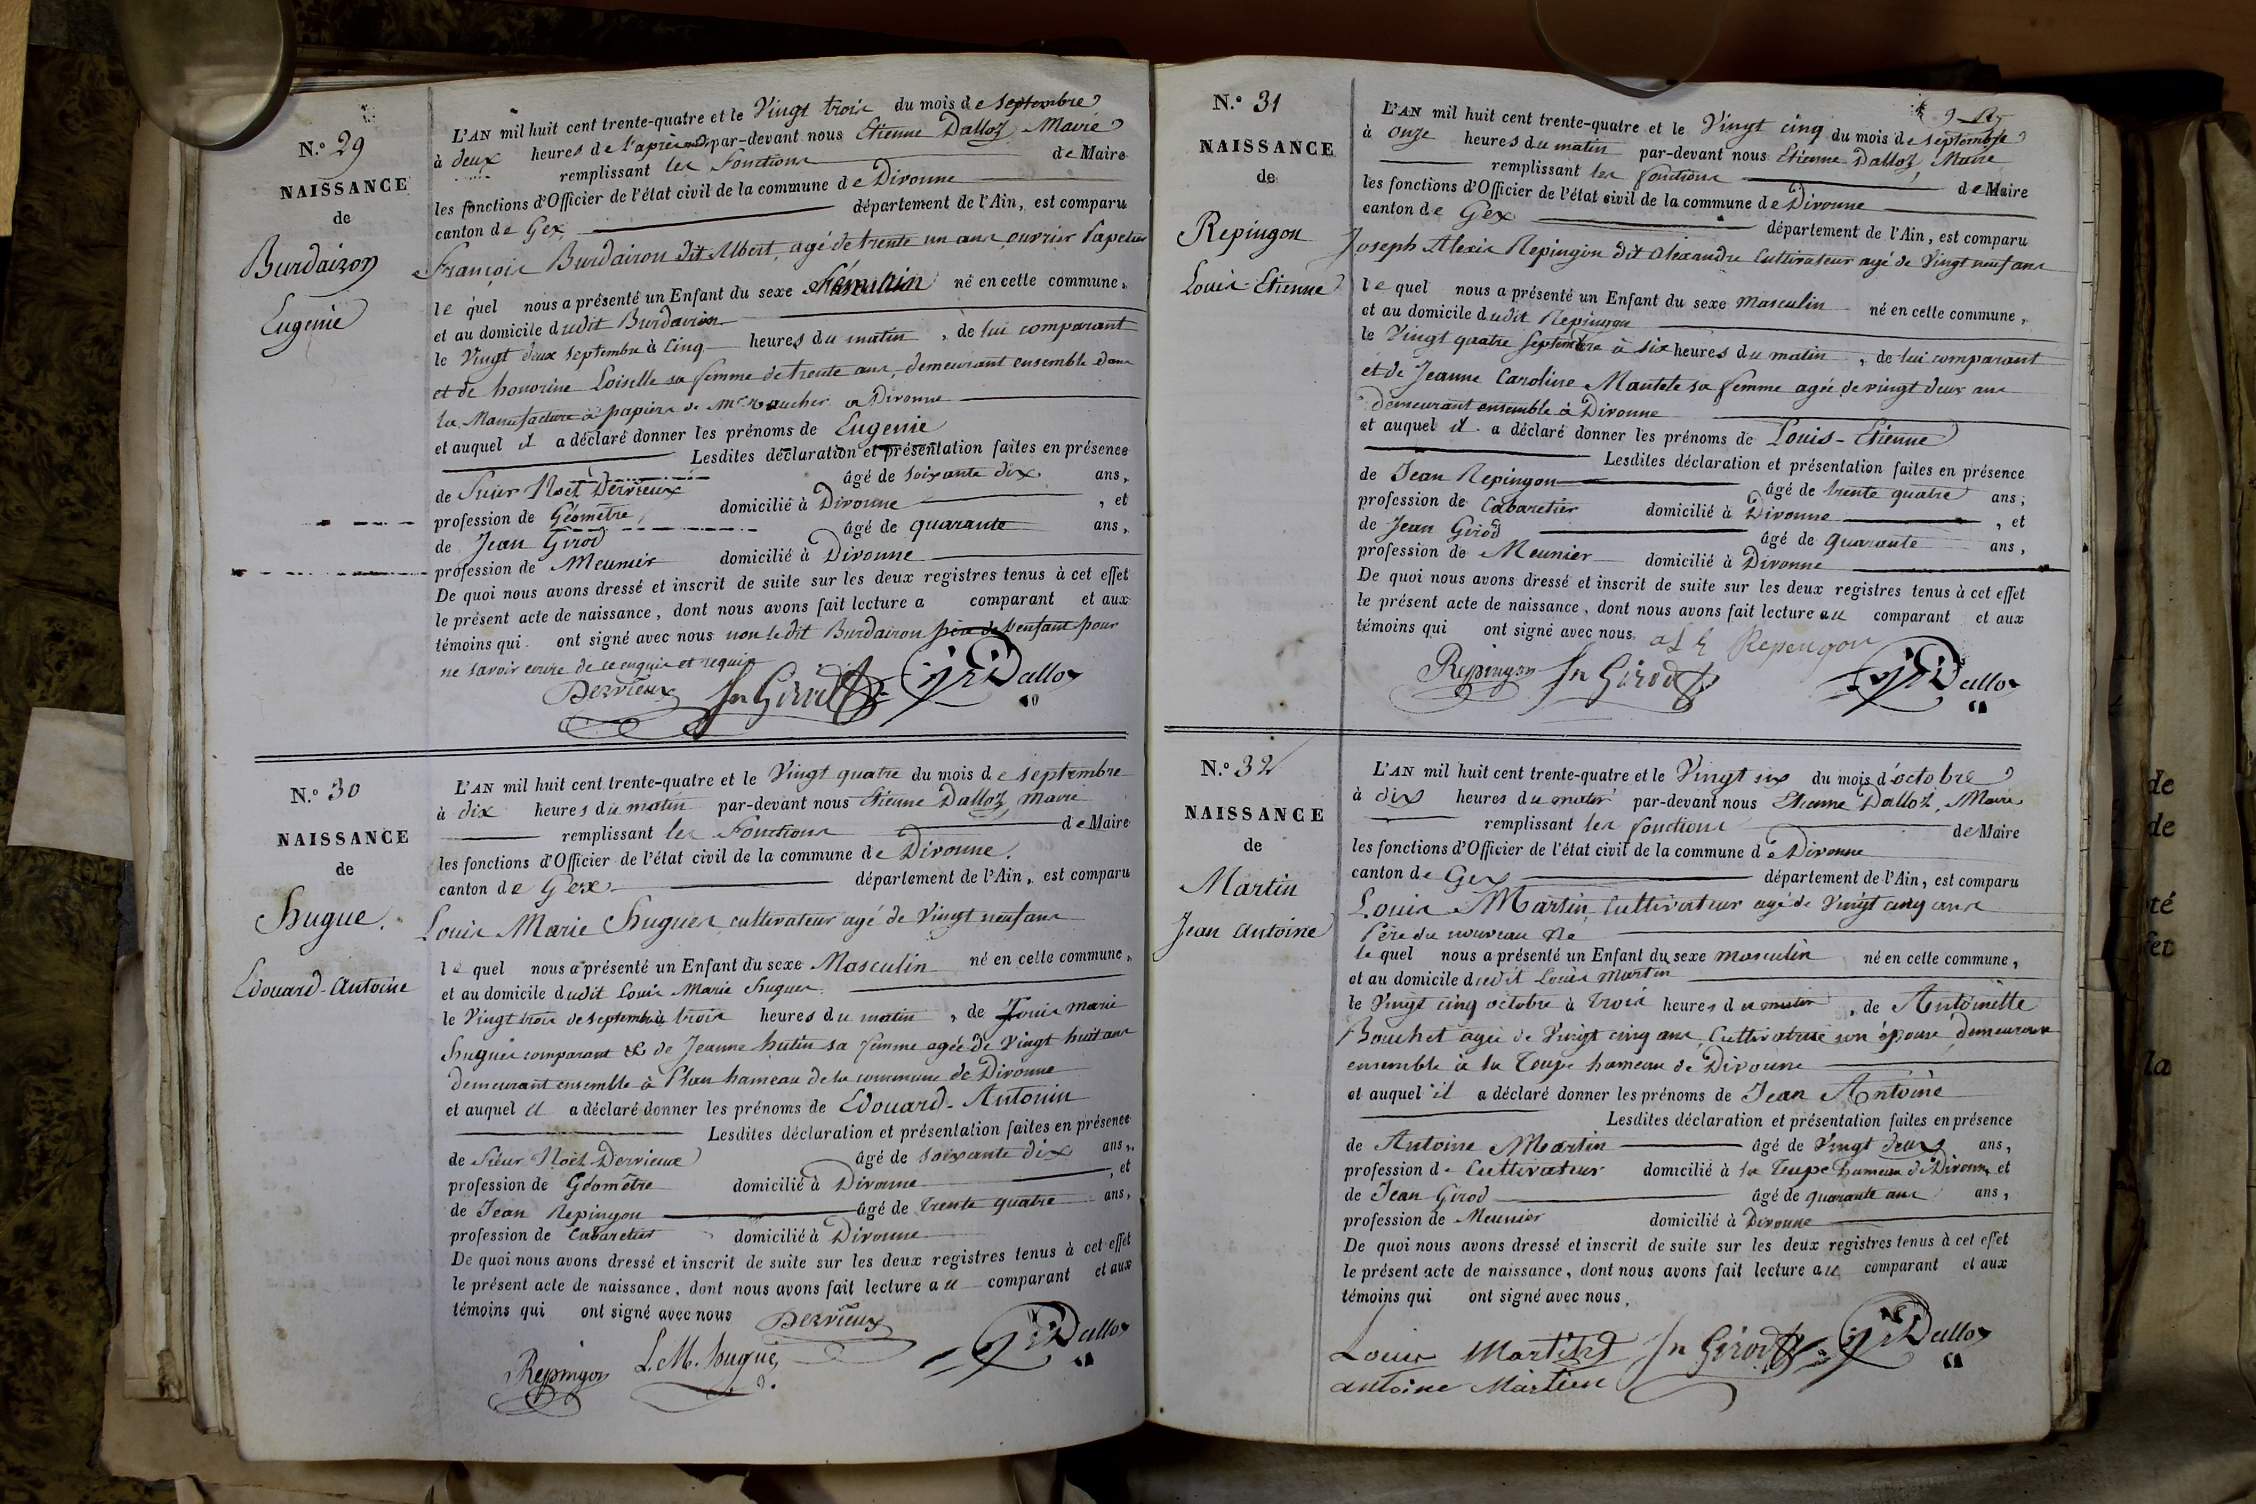 N.º 29
NAISSANCE
de
Burdairon
Eugenie
L'AN mil huit cent trente-quatre et le Vingt trois du mois de septembre
à deux heures de l'après par-devant nous Etienne Dalloz Maire
remplissant les fonctions de Maire
les fonctions d'Officier de l'état civil de la commune de Divonne
canton de Gex département de l'Ain, est comparu
François Burdairon dit Albert, agé de trente un ans, ouvrier Papetier
le quel nous a présenté un Enfant du sexe féminin né en cette commune,
et au domicile dudit Burdairon
le Vingt deux septembre à Cinq heures du matin, de lui comparant
et de honorine Loiselle sa femme de trente ans, demeurant ensemble dans
la Manufacture à papiers de Mr vaucher à Divonne
et auquel il a déclaré donner les prénoms de Eugenie
Lesdites déclaration et présentation faites en présence
de Sieur Noël Derrieux âgé de soixante dix ans,
profession de Géomètre, domicilié à Divonne, et
de Jean Girod âgé de quarante ans,
profession de Meunier domicilié à Divonne
De quoi nous avons dressé et inscrit de suite sur les deux registres tenus à cet effet
le présent acte de naissance, dont nous avons fait lecture a comparant et aux
témoins qui ont signé avec nous non le dit Burdairon père de l'enfant pour
ne savoir écrire de ce enquis et requis
Derrieux Jn Girod Dalloz
N.º 30
NAISSANCE
de
hugue.
Edouard-Antoine
L'AN mil huit cent trente-quatre et le Vingt quatre du mois de septembre
à dix heures du matin par-devant nous Etienne Dalloz, Maire
remplissant les fonctions de Maire
les fonctions d'Officier de l'état civil de la commune de Divonne.
canton de Gex département de l'Ain, est comparu
Louis Marie hugues cultivateur agé de Vingt neuf ans
le quel nous a présenté un Enfant du sexe Masculin né en cette commune,
et au domicile dudit Louis Marie hugues.
le Vingt trois de septembre à trois heures du matin, de Louis marie
hugues comparant & de Jeanne hutin sa femme agée de Vingt huit ans
demeurant ensemble à Plan hameau de la commune de Divonne
et auquel il a déclaré donner les prénoms de Edouard-Antonin
Lesdites déclaration et présentation faites en présence
de Sieur Noël Derrieux âgé de soixante dix ans,
profession de Géomètre domicilié à Divonne, et
de Jean Repingon âgé de trente quatre ans,
profession de Cabaretier domicilié à Divonne
De quoi nous avons dressé et inscrit de suite sur les deux registres tenus à cet effet
le présent acte de naissance, dont nous avons fait lecture au comparant et aux
témoins qui ont signé avec nous Derrieux
Repingon L.M. hugue Dalloz
N.º 31
NAISSANCE
de
Repingon
Louis-Etienne
L'AN mil huit cent trente-quatre et le Vingt cinq du mois de septembre
à onze heures du matin par-devant nous Etienne Dalloz, Maire
remplissant les fonctions de Maire
les fonctions d'Officier de l'état civil de la commune de Divonne
canton de Gex département de l'Ain, est comparu
Joseph Alexis Repingon dit alexandre Cultivateur agé de Vingt neuf ans
le quel nous a présenté un Enfant du sexe masculin né en cette commune,
et au domicile dudit Repingon
le Vingt quatre septembre à six heures du matin, de lui comparant
et de Jeanne Caroline Mantele sa femme agée de vingt deux ans
demeurant ensemble à Divonne
et auquel il a déclaré donner les prénoms de Louis-Etienne
Lesdites déclaration et présentation faites en présence
de Jean Repingon âgé de trente quatre ans,
profession de Cabaretier domicilié à Divonne, et
de Jean Girod âgé de quarante ans,
profession de Meunier domicilié à Divonne
De quoi nous avons dressé et inscrit de suite sur les deux registres tenus à cet effet
le présent acte de naissance, dont nous avons fait lecture au comparant et aux
témoins qui ont signé avec nous, Repengon
Repingon Jn Girod Dalloz
N.º 32
NAISSANCE
de
Martin
Jean Antoine
L'AN mil huit cent trente-quatre et le Vingt six du mois d'octobre
à dix heures du matin par-devant nous Etienne Dalloz, Maire
remplissant les fonctions de Maire
les fonctions d'Officier de l'état civil de la commune de Divonne
canton de Gex département de l'Ain, est comparu
Louis Martin Cultivateur agé de Vingt cinq ans
Père du nouveau né
le quel nous a présenté un Enfant du sexe masculin né en cette commune,
et au domicile dudit Louis Martin
le Vingt cinq octobre à trois heures du matin, de Antoinette
Bouchet agée de Vingt cinq ans, Cultivatrice son épouse, demeurant
ensemble à la Toupe hameau de Divonne
et auquel il a déclaré donner les prénoms de Jean Antoine
Lesdites déclaration et présentation faites en présence
de Antoine Martin âgé de Vingt deux ans,
profession de Cultivateur domicilié à la Toupe hameau de Divonne, et
de Jean Girod âgé de quarante ans ans,
profession de Meunier domicilié à Divonne
De quoi nous avons dressé et inscrit de suite sur les deux registres tenus à cet effet
le présent acte de naissance, dont nous avons fait lecture au comparant et aux
témoins qui ont signé avec nous,
Louis Martin Jn Girod Dalloz
antoine Martin
de
de
té
fet
la